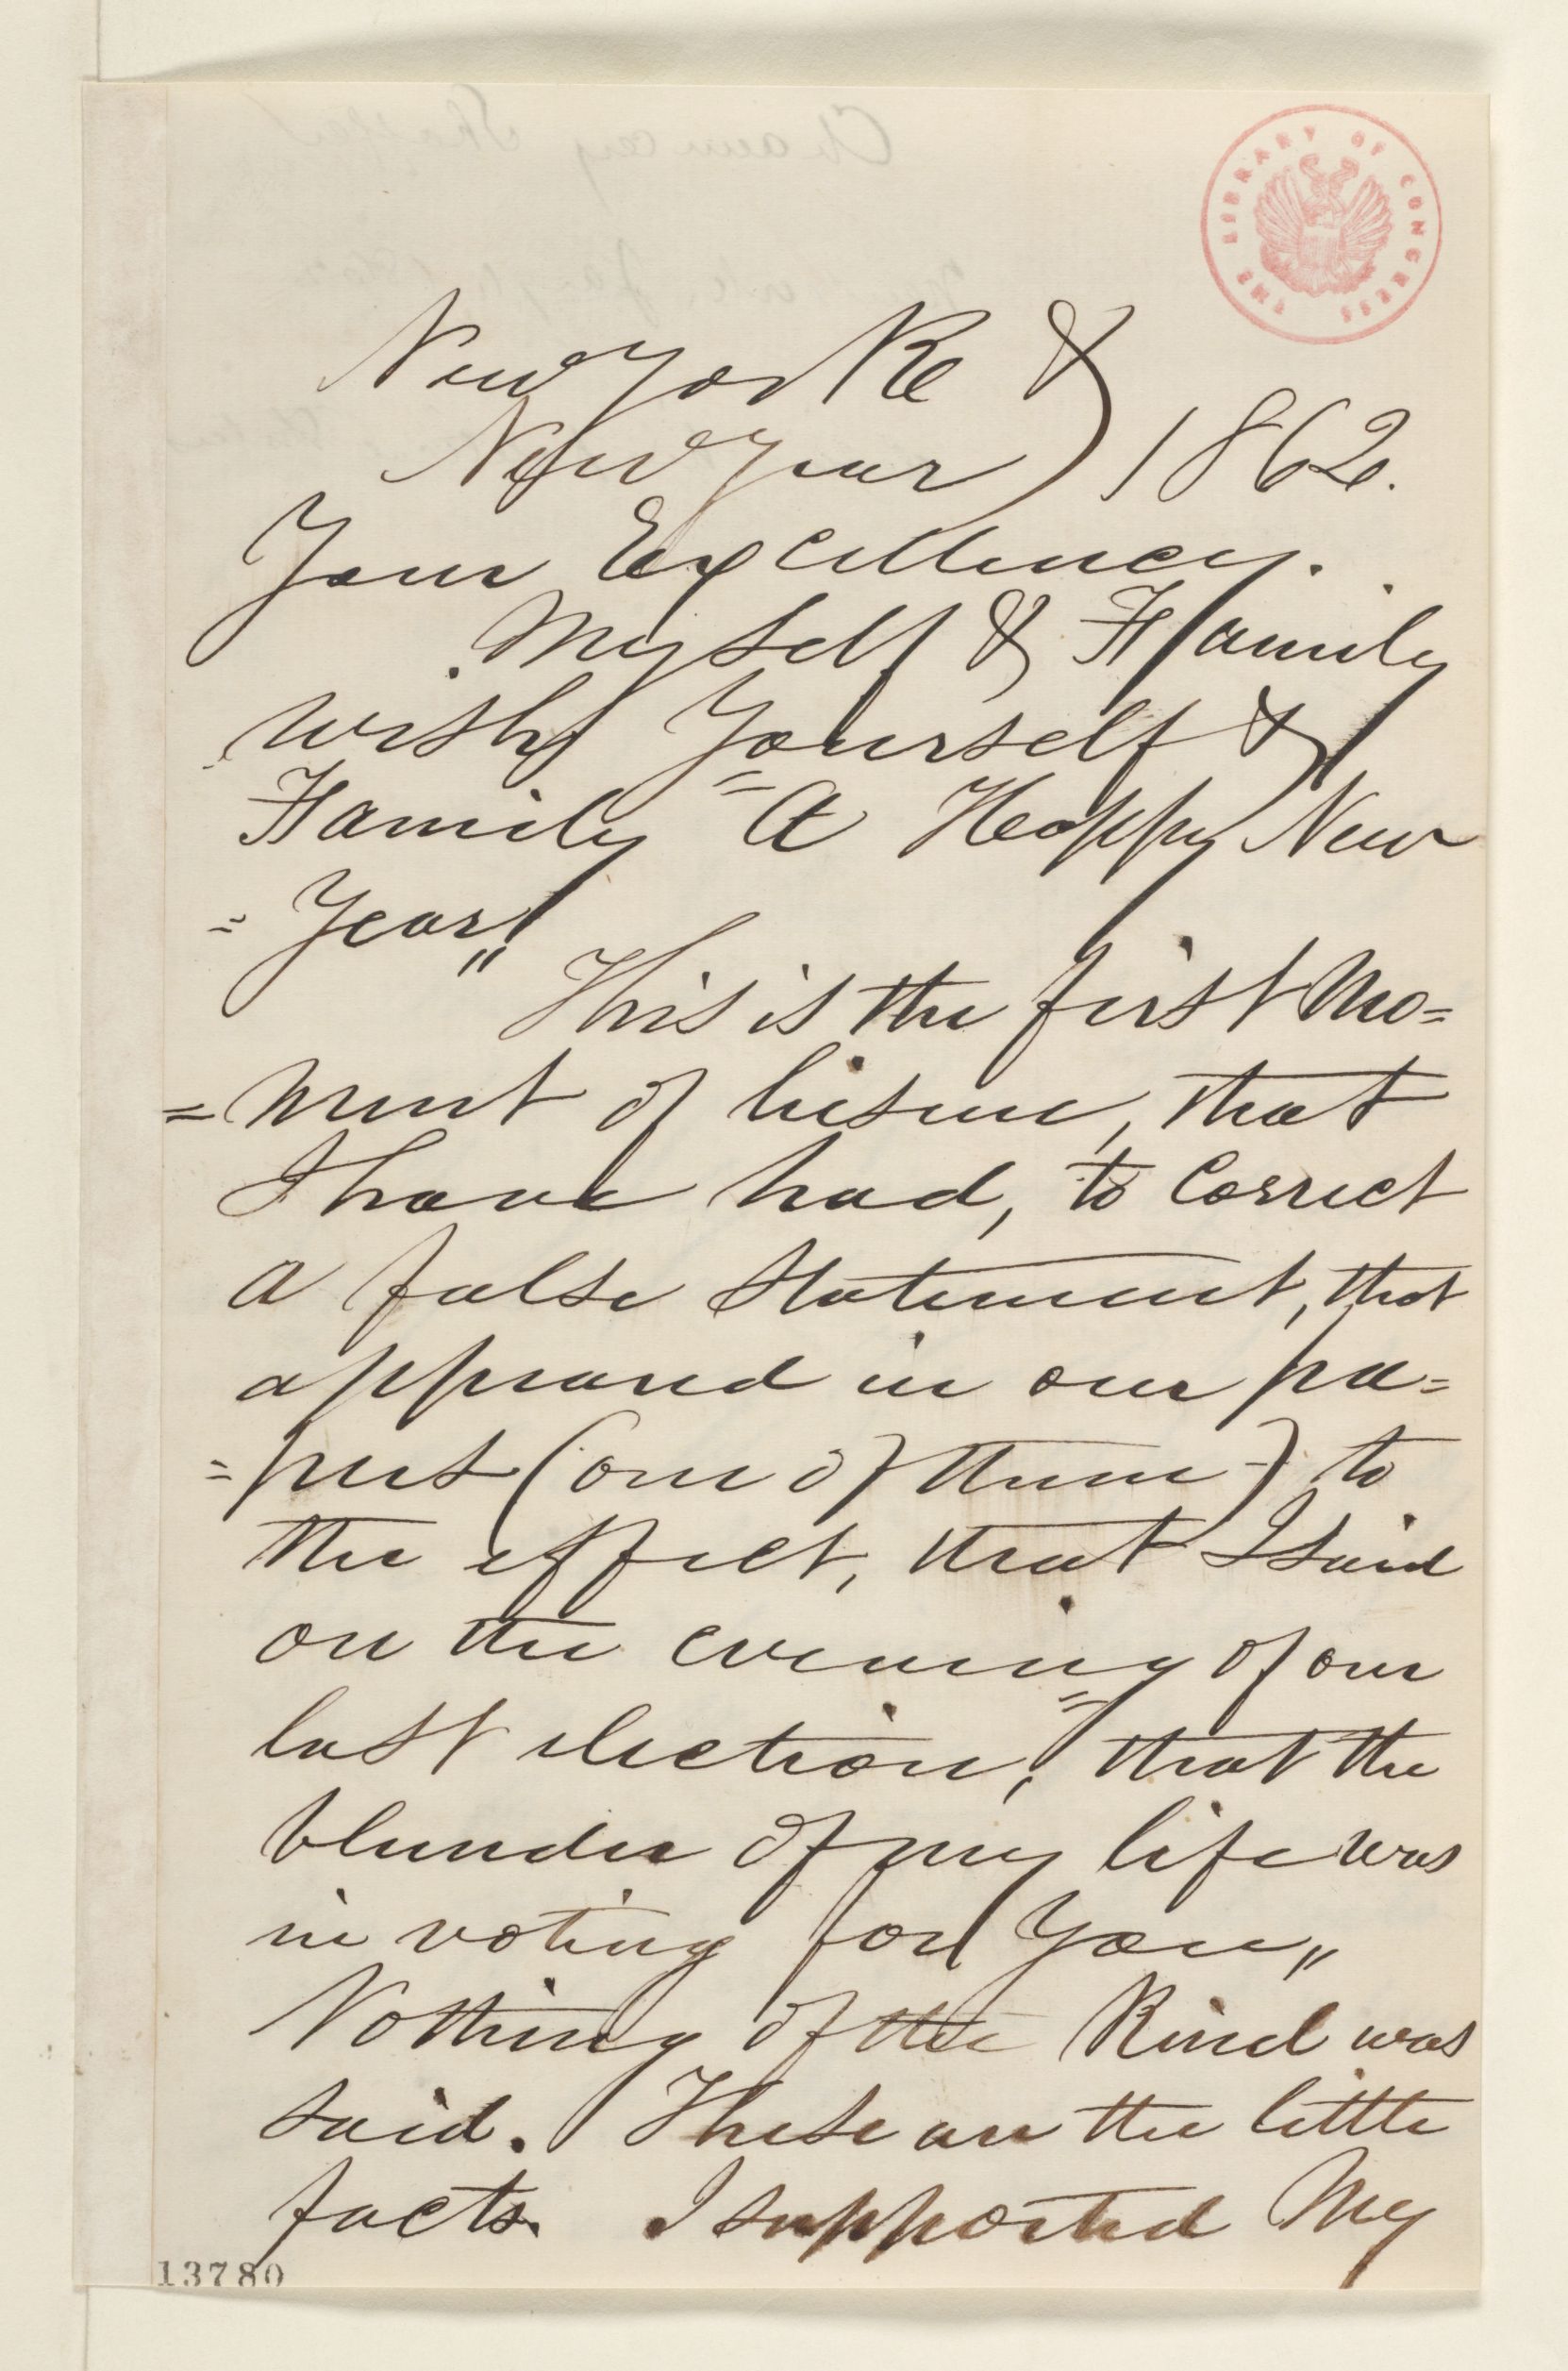 THE LIBRARY OF CONGRESS
New York &
New Year) 1862.
Your Excellency.
Myself & Family
wish Yourself &
Family "A Happy New
= Year"
This is the first Mo=
=ment of liesure, that
I have had, to Correct
a false statement, that
appeared in our pa=
=pers (one of them -) to
the effect, that I said
on the evening of our
last election, "that the
blunder of my life was
in voting for You"
Nothing of the Kind was
said. These are the little
facts. I supported My
13780